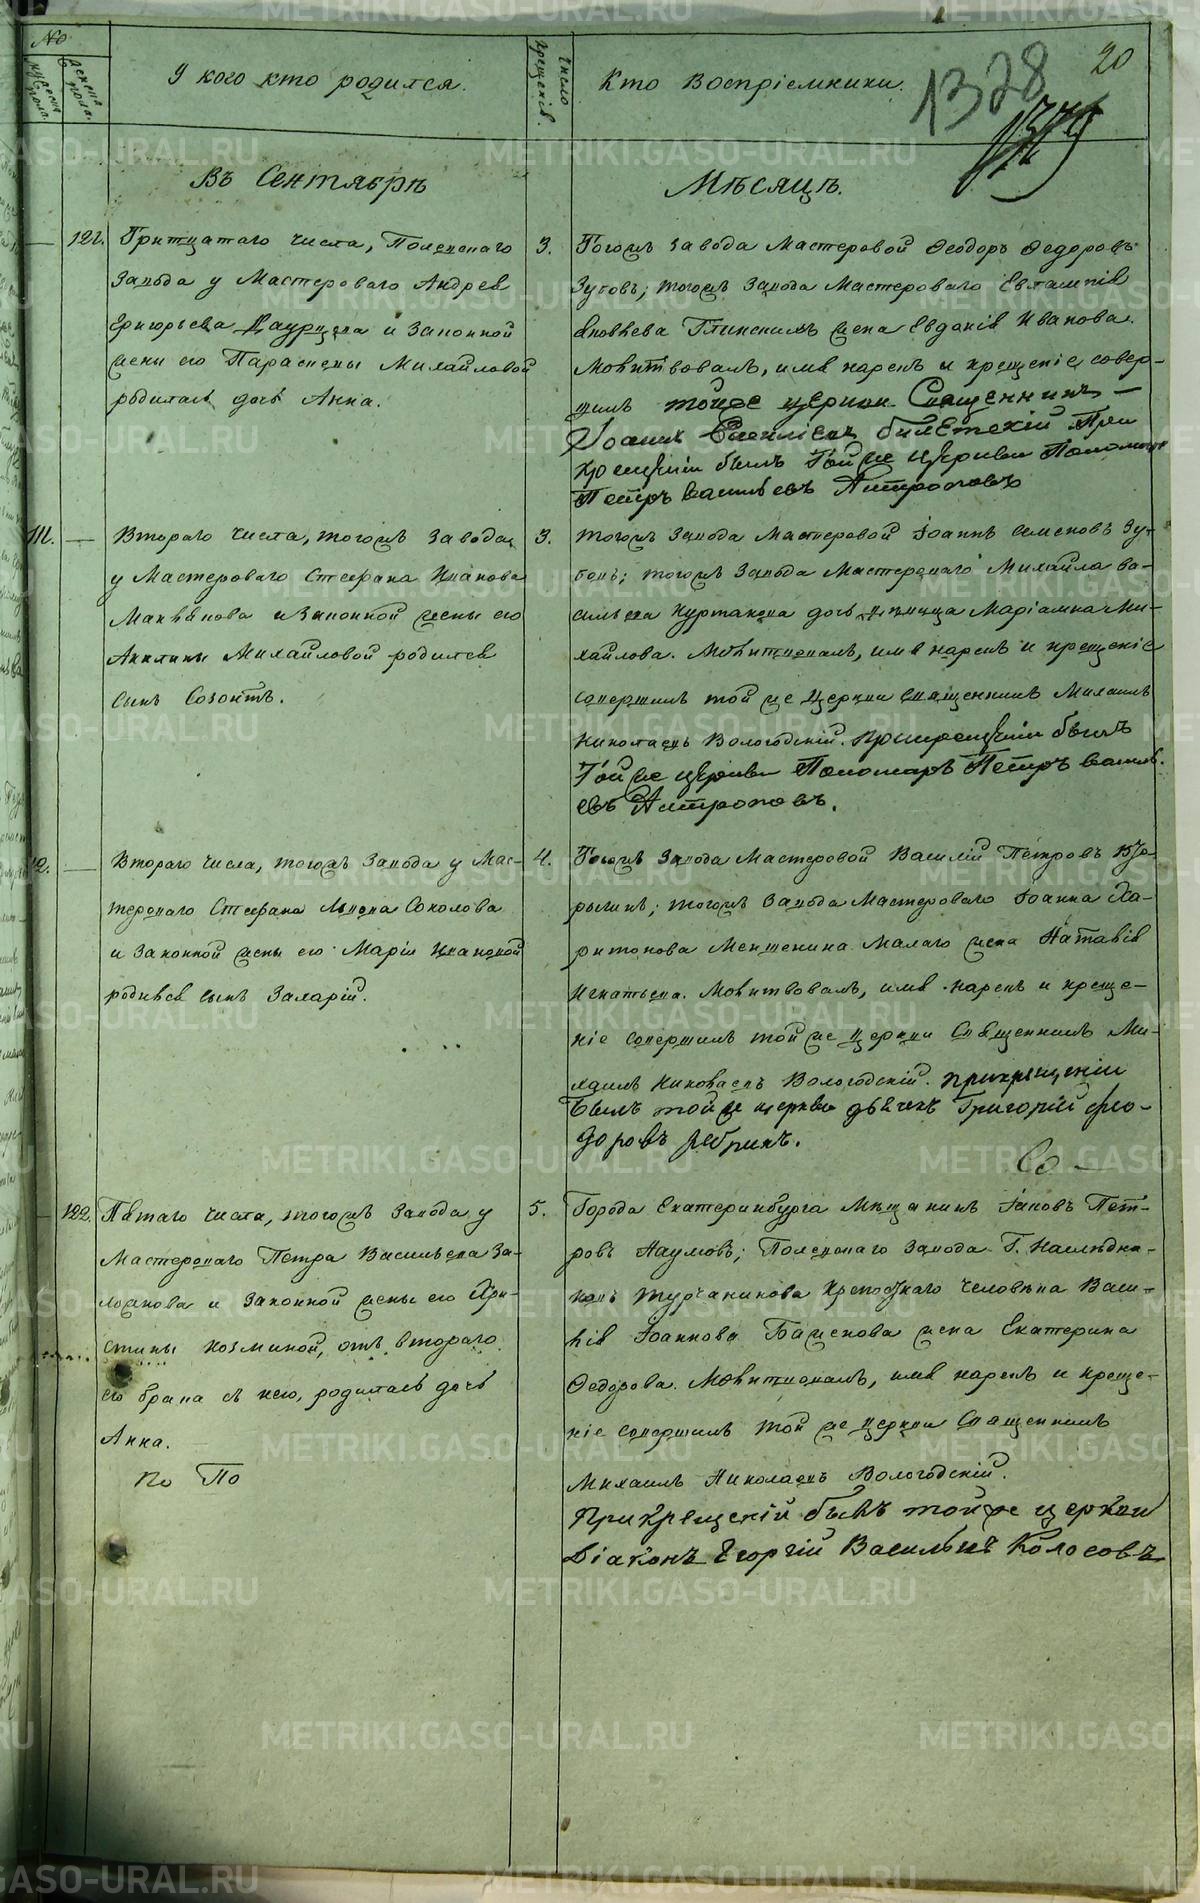 №
мужеска пола.
женска пола.
У кого кто родился.
Число крещенія.
Кто Воспріемники.
1328
20
Въ Сентябрѣ
Мѣсяцѣ.
121.
Тритцатаго числа, Полевскаго
завода у Мастероваго Андрея
Григорьева и законной
жены его Параскевы Михайловой
родилась дочь Анна.
3.
Тогожъ завода Мастеровой Феодоръ Федоровъ
Зубовъ; тогожъ завода Мастероваго Евлампія
Яковлева жена Евдокія Иванова.
Молитвовалъ, имя нарекъ и крещеніе совер-
шилъ тойже церкви Священникъ
Іоаннъ При
крещеніи былъ тойже церкви Пономарь
Петръ Васильевъ Антроповъ
111.
Втораго числа, тогожъ завода
у Мастероваго Стефана Иванова
и законной жены его
Акилины Михайловой родился
сынъ Созонтъ.
3.
Тогожъ завода Мастеровой Іоаннъ Семеновъ Зу-
бовъ; тогожъ завода Мастероваго Михайла Ва-
сильева дочь дѣвица Маріамна Ми-
хайлова. Молитвовалъ, имя нарекъ и крещеніе
совершилъ той же церкви священникъ Михаилъ
Николаевъ Вологодскій. При крещеніи былъ
Той же церкви Пономарь Петръ Василь-
евъ Антроповъ.
12.
Втораго числа, тогожъ завода у Мас-
тероваго Стефана Львова Соколова
и законной жены его Маріи Ивановой
родился сынъ Захарій.
4.
Тогожъ завода Мастеровой Василій Петровъ
тогожъ завода Мастероваго Іоанна Ха-
ритонова Меншенина Малаго жена Наталія
Игнатьева. Молитвовалъ, имя нарекъ и креще-
ніе совершилъ той же церкви Священникъ Ми-
хаилъ Николаевъ Вологодскій. При крещеніи
былъ той же церкви дьячекъ Григорій Фео-
доровъ Ребринъ.
Со—
122.
Пятаго числа, тогожъ завода у
Мастероваго Петра Васильева За-
ложнова и законной жены его Хри-
стины Козминой, отъ втораго
его брака съ нею, родилась дочь
Анна.
По По
5.
Города Екатеринбурга Мѣщанинъ Іаковъ Пет-
ровъ Наумовъ; Полевскаго завода Г. Наслѣдни-
ковъ Турчанинова Крѣпостнаго человѣка Васи-
лія Іоаннова Баженова жена Екатерина
Федорова. Молитвовалъ, имя нарекъ и креще-
ніе совершилъ той же церкви Священникъ
Михаилъ Николаевъ Вологодскій.
При крещеніи былъ той же церкви
Діаконъ Георгій Васильевъ Колосовъ